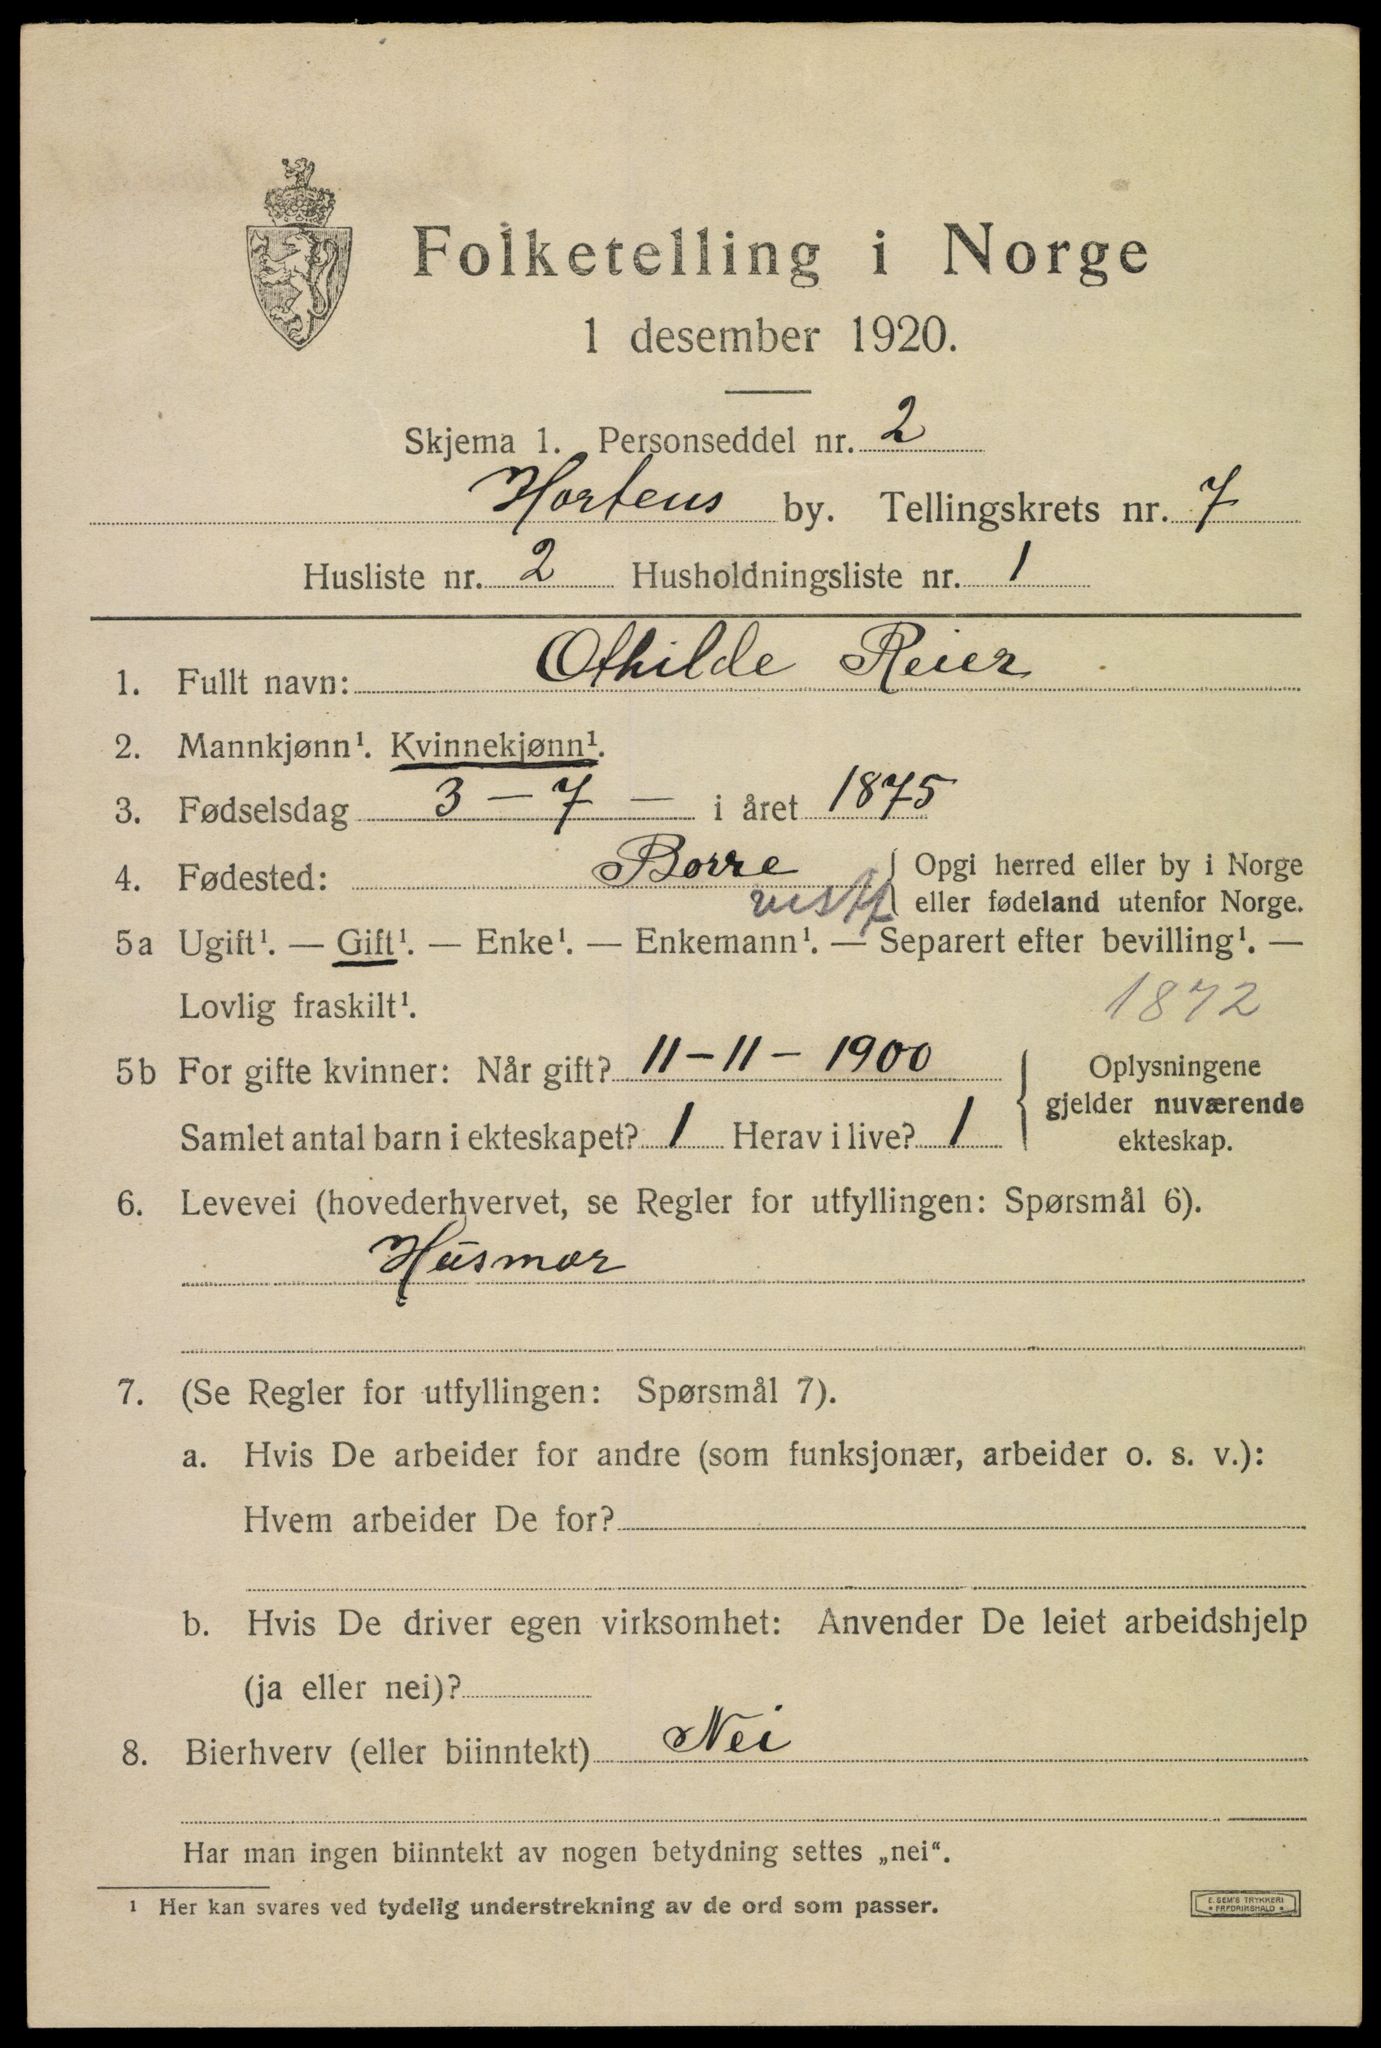 Folketelling i Norge
1 desember 1920.
Skjema 1. Personseddel nr. 2
Hortens by. Tellingskrets nr. 7
Husliste nr. 2 Husholdningsliste nr. 1
1. Fullt navn: Othilde Reier
2. Mannkjønn¹. Kvinnekjønn¹.
3. Fødselsdag 3 – 7 – i året 1875
4. Fødested: Borre { Opgi herred eller by i Norge
vestf eller fødeland utenfor Norge.
5a Ugift¹. — Gift¹. — Enke¹. — Enkemann¹. — Separert efter bevilling¹. —
Lovlig fraskilt¹. 1872
5b For gifte kvinner: Når gift? 11 – 11 – 1900
Samlet antal barn i ekteskapet? 1 Herav i live? 1
Oplysningene
gjelder nuværende
ekteskap.
6. Levevei (hovederhvervet, se Regler for utfyllingen: Spørsmål 6).
Husmor
7. (Se Regler for utfyllingen: Spørsmål 7).
a. Hvis De arbeider for andre (som funksjonær, arbeider o. s. v.):
Hvem arbeider De for?
b. Hvis De driver egen virksomhet: Anvender De leiet arbeidshjelp
(ja eller nei)?
8. Bierhverv (eller biinntekt) Nei
Har man ingen biinntekt av nogen betydning settes „nei“.
¹ Her kan svares ved tydelig understrekning av de ord som passer.
E. SEM'S TRYKKERI
* FREDRIKSHALD *